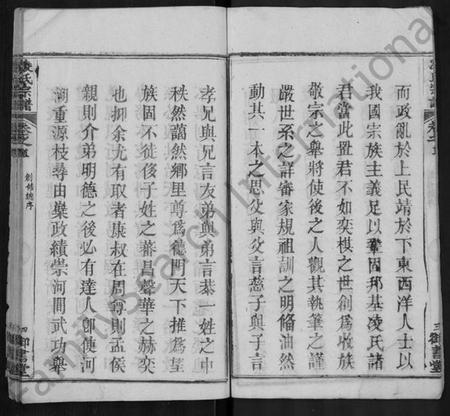 而政亂於上民靖於下東西洋人士以
我國宗族主義足以鞏固邦基凌氏諸
君當此置君不如奕棋之世創為收族
敬宗之舉將使後之人觀其執筆之謹
嚴世系之詳審家規祖訓之明備油然
動其一本之思父與父言慈子與子言
三
御書堂
孝兄與兄言友弟與弟言恭一姓之中
秩然藹然鄉里尊為德門天下推為望
族固不徒後子姓之蕃昌聲華之赫奕
也抑余尤有取者康叔在周尊則孟侯
親則介弟明德之後必有達人卽便河
澗重源枝尋由蘖政績崇河間武功舉
氏宗譜
創修總序
四
御書堂
FamilySearch International